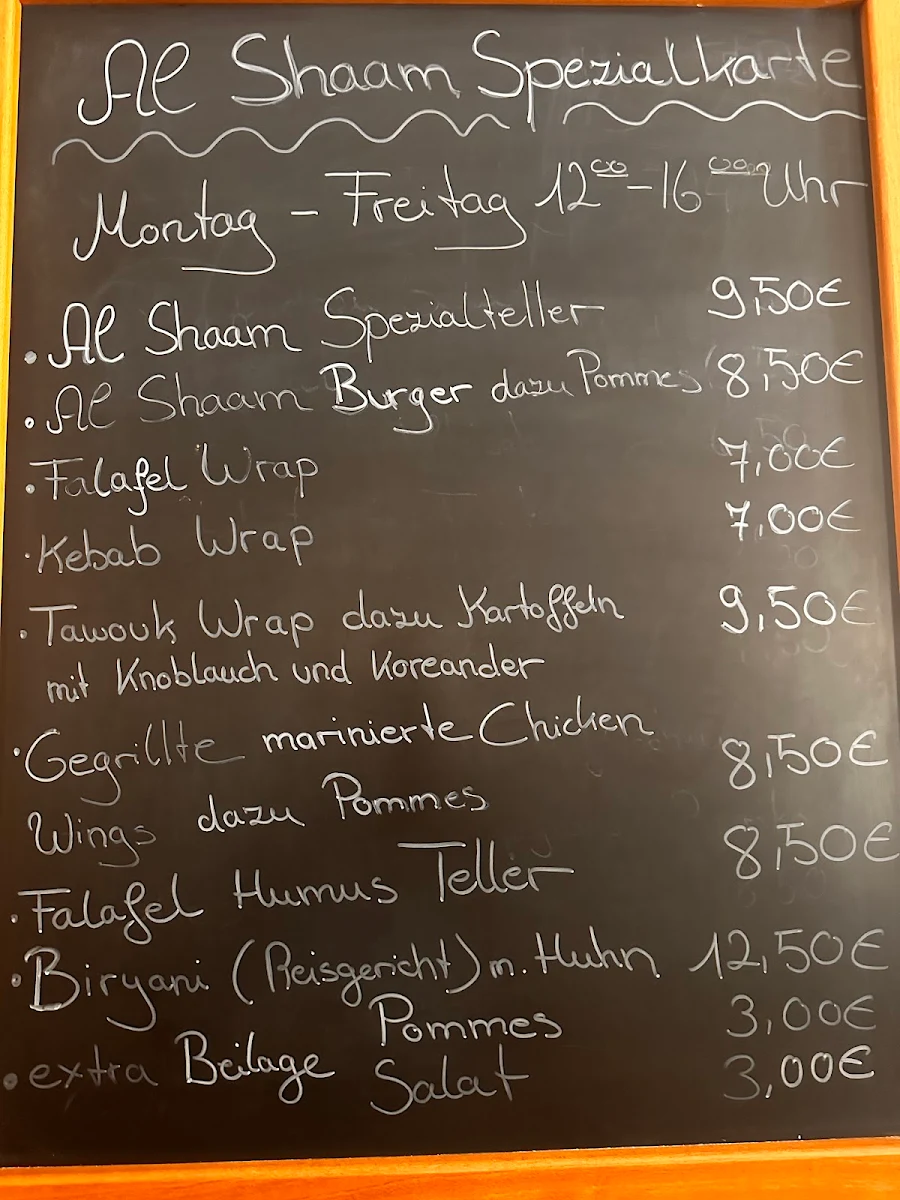 Al Shaam Spezialkarte
Montag - Freitag 12⁰⁰-16⁰⁰ Uhr
• Al Shaam Spezialteller 9,50€
• Al Shaam Burger dazu Pommes 8,50€
• Falafel Wrap 7,00€
• Kebab Wrap 7,00€
• Tawouk Wrap dazu Kartoffeln 9,50€
mit Knoblauch und Koreander
• Gegrillte marinierte Chicken
Wings dazu Pommes 8,50€
• Falafel Humus Teller 8,50€
• Biryani (Reisgericht) m. Huhn 12,50€
Pommes 3,00€
• extra Beilage Salat 3,00€